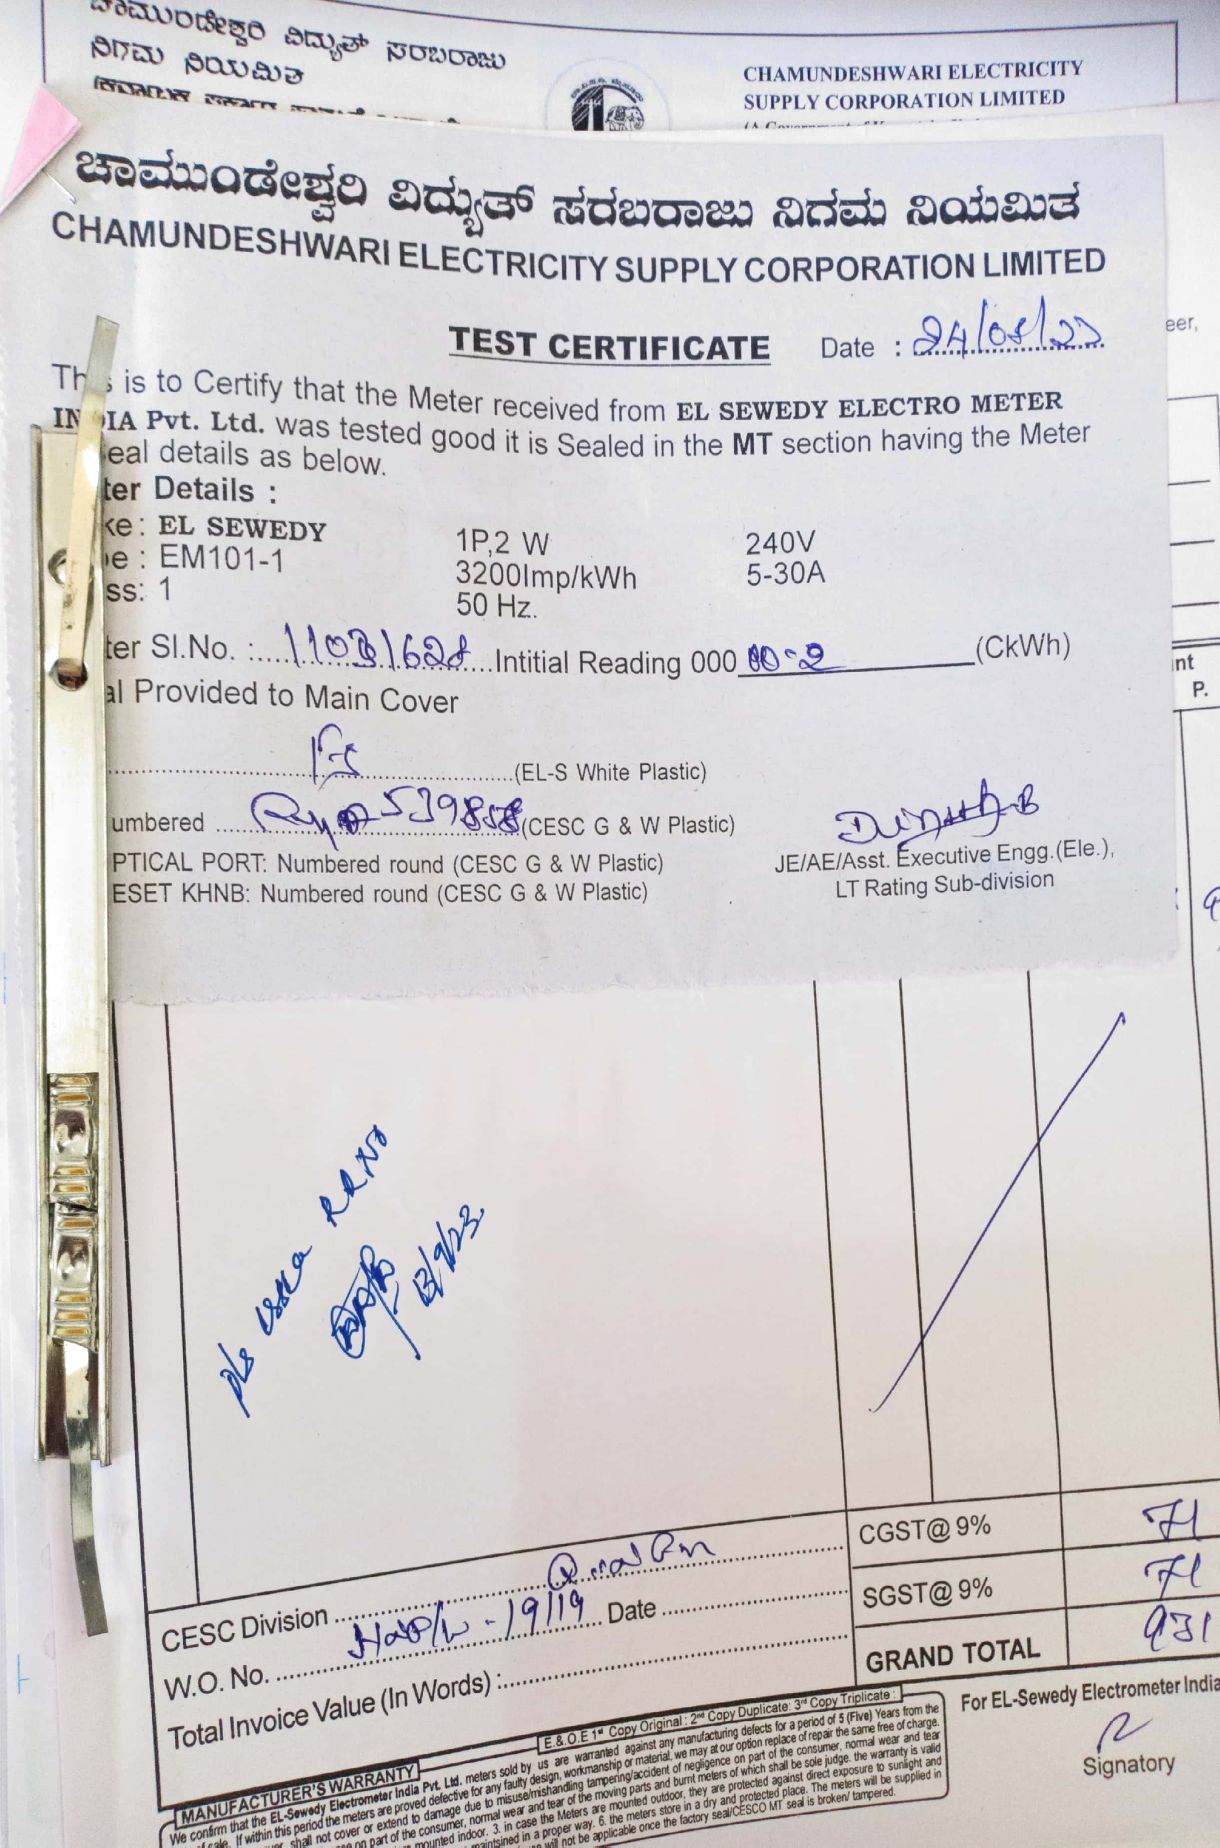 ಚಾಮುಂಡೇಶ್ವರಿ ವಿದ್ಯುತ್ ಸರಬರಾಜು
ನಿಗಮ ನಿಯಮಿತ
CHAMUNDESHWARI ELECTRICITY
SUPPLY CORPORATION LIMITED
ಚಾಮುಂಡೇಶ್ವರಿ ವಿದ್ಯುತ್ ಸರಬರಾಜು ನಿಗಮ ನಿಯಮಿತ
CHAMUNDESHWARI ELECTRICITY SUPPLY CORPORATION LIMITED
TEST CERTIFICATE Date :
eer,
is to Certify that the Meter received from EL SEWEDY ELECTRO METER
Pvt. Ltd. was tested good it is Sealed in the MT section having the Meter
eal details as below.
ter Details :
ke: EL SEWEDY 1P,2 W 240V
e : EM101-1 3200Imp/kWh 5-30A
ss: 1 50 Hz.
ter Sl.No. : Intitial Reading 000 (CkWh)
al Provided to Main Cover
nt
P.
(EL-S White Plastic)
umbered 539858 (CESC G & W Plastic)
PTICAL PORT: Numbered round (CESC G & W Plastic)
ESET KHNB: Numbered round (CESC G & W Plastic)
JE/AE/Asst. Executive Engg.(Ele.),
LT Rating Sub-division
RRNo
13/9/23
CGST@ 9% 71
SGST@ 9% 71
GRAND TOTAL 931
CESC Division
W.O. No. 19/19 Date
Total Invoice Value (In Words) :
E.& O.E 1st Copy Original : 2nd Copy Duplicate: 3rd Copy Triplicate :
For EL-Sewedy Electrometer India
Signatory
MANUFACTURER'S WARRANTY
We confirm that the EL-Sewedy Electrometer India Pvt. Ltd. meters sold by us are warranted against any manufacturing defects for a period of 5 (Five) Years from the
sale. If within this period the meters are proved defective for any faulty design, workmanship or material, we may at our option replace of repair the same free of charge.
shall not cover or extend to damage due to misuse/mishandling tampering/accident of negligence on part of the consumer, normal wear and tear
on part of the consumer, normal wear and tear of the moving parts and burnt meters of which shall be sole judge. the warranty is valid
mounted indoor. 3. in case the Meters are mounted outdoor, they are protected against direct exposure to sunlight and
maintsined in a proper way. 6. the meters store in a dry and protected place. The meters will be supplied in
will not be applicable once the factory seal/CESCO MT seal is broken/ tampered.